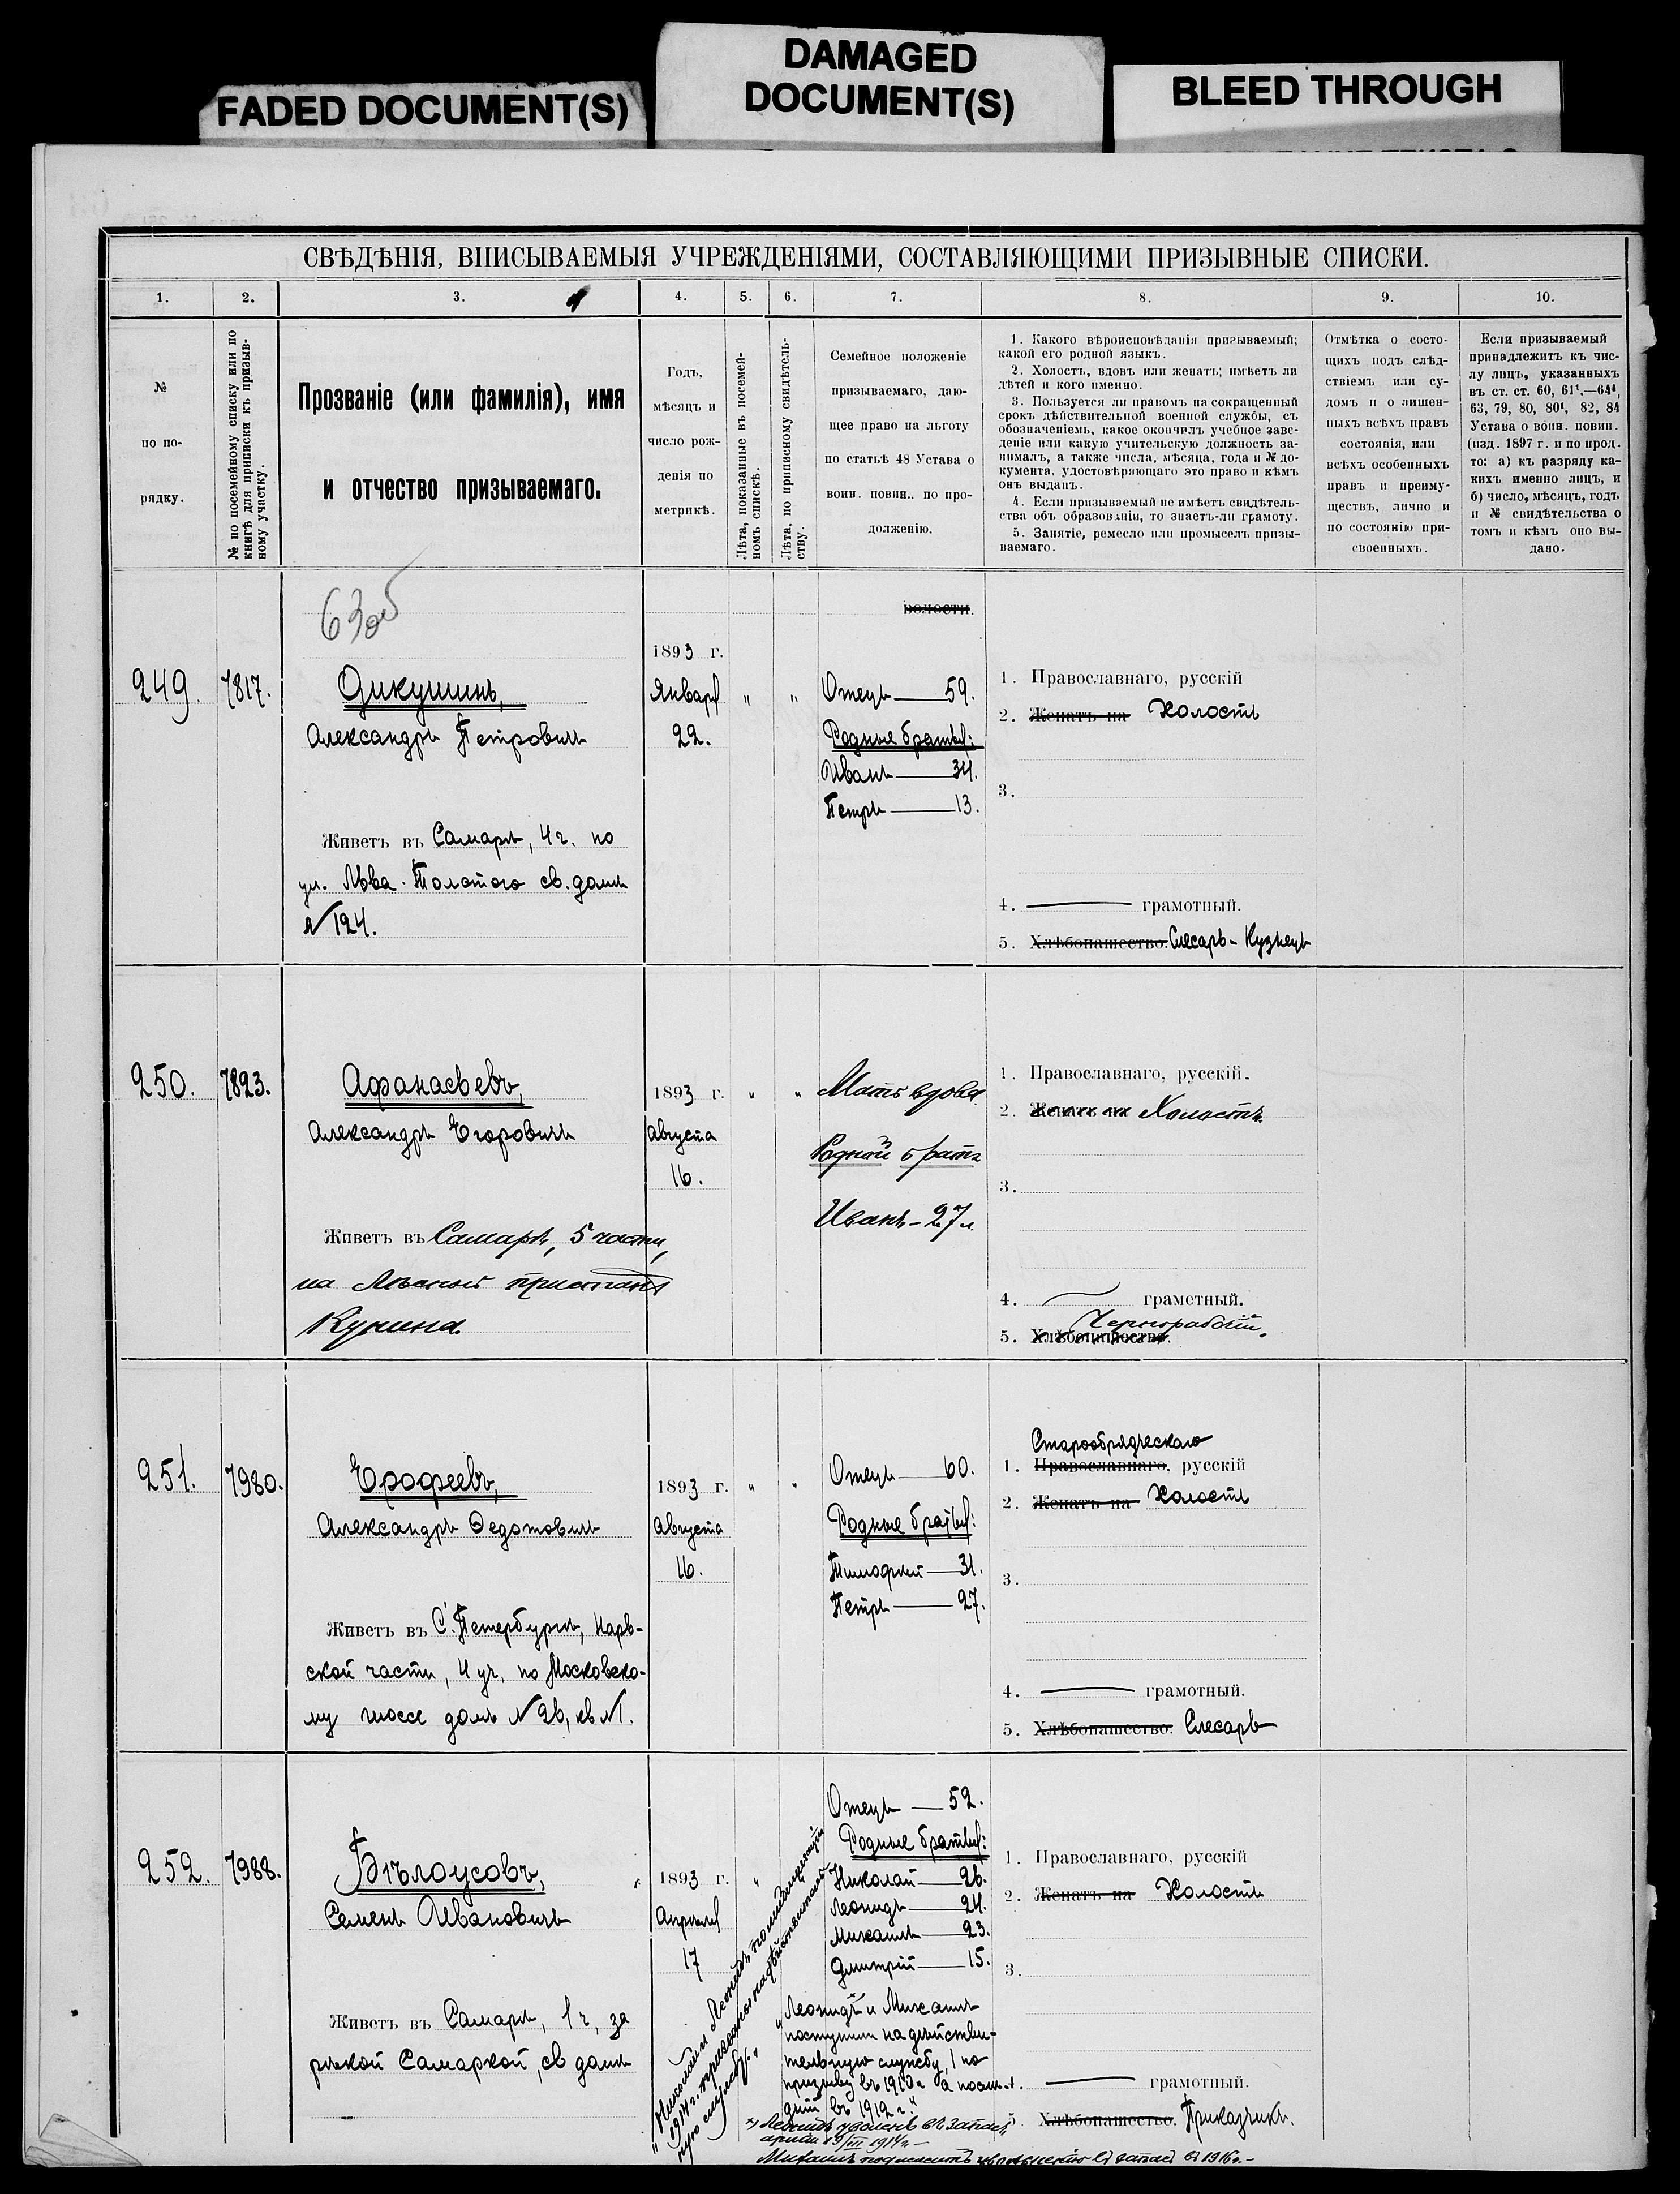 FADED DOCUMENT(S)
DAMAGED
DOCUMENT(S)
BLEED THROUGH
СВѢДѢНІЯ, ВПИСЫВАЕМЫЯ УЧРЕЖДЕНІЯМИ, СОСТАВЛЯЮЩИМИ ПРИЗЫВНЫЕ СПИСКИ.
1. 2. 3. 4. 5. 6. 7. 8. 9. 10.
№
по по-
рядку.
№ по посемейному списку или по
книгѣ для приписки къ призыв-
ному участку.
Прозваніе (или фамилія), имя
и отчество призываемаго.
Годъ,
мѣсяцъ и
число рож-
денія по
метрикѣ.
Лѣта, показанные въ посемей-
номъ спискѣ.
Лѣта, по приписному свидѣтель-
ству.
Семейное положеніе
призываемаго, даю-
щее право на льготу
по статьѣ 48 Устава о
воин. повин.. по про-
долженію.
1. Какого вѣроисповѣданія призываемый;
какой его родной языкъ.
2. Холостъ, вдовъ или женатъ; имѣетъ ли
дѣтей и кого именно.
3. Пользуется ли правомъ на сокращенный
срокъ дѣйствительной военной службы, съ
обозначеніемъ, какое окончилъ учебное заве-
деніе или какую учительскую должность за-
нималъ, а также числа, мѣсяца, года и № до-
кумента, удостовѣряющаго это право и кѣмъ
онъ выданъ.
4. Если призываемый не имѣетъ свидѣтель-
ства объ образованіи, то знаетъ-ли грамоту.
5. Занятіе, ремесло или промыселъ призы-
ваемаго.
Отмѣтка о состо-
щихъ подъ слѣд-
ствіемъ или су-
домъ и о лишен-
ныхъ всѣхъ правъ
состоянія, или
всѣхъ особенныхъ
правъ и преиму-
ществъ, лично и
по состоянію при-
своенныхъ.
Если призываемый
принадлежитъ къ чис-
лу лицъ, указанныхъ
въ ст. ст. 60, 61¹.—64⁴,
63, 79, 80, 80¹, 82, 84
Устава о воин. повин.
(изд. 1897 г. и по прод.
то: а) къ разряду ка-
кихъ именно лицъ, и
б) число, мѣсяцъ, годъ
и № свидѣтельства о
томъ и кѣмъ оно вы-
дано.
волости.
249. 7817.
Дикушинъ,
Александръ Петровичъ
Живетъ въ Самарѣ, 4 ч. по
ул. Льва Толстого св. домъ
№ 124.
1893 г.
Января
22.
" "
Отецъ — 59.
Родные братья:
Иванъ — 34.
Петръ — 13.
1. Православнаго, русскій
2. Женатъ на Холостъ
3.
4. — грамотный.
5. Хлѣбопашество. Слесарь-Кузнецъ
250. 7823.
Афанасьевъ,
Александръ Егоровичъ
Живетъ въ Самарѣ, 5 части,
на Лѣсной пристани
1893 г.
Августа
16.
" "
Мать вдова
Родной братъ
Иванъ - 27 л.
1. Православнаго, русскій.
2. Женатъ на Холостъ
3.
4. — грамотный.
Чернорабочій.
5. Хлѣбопашество.
251. 7980.
Ерофеевъ,
Александръ Федотовичъ
Живетъ въ С. Петербургѣ, Нарв-
ской части, 4 уч. по Московско-
му шоссе домъ № 26, кв № 1.
1893 г.
Августа
16.
" "
Отецъ — 60.
Родные братья:
Тимофей — 31.
Петръ — 27.
Старообрядческаго
1. Православнаго, русскій
2. Женатъ на Холостъ
3.
4. — грамотный.
5. Хлѣбопашество. Слесарь
252. 7988.
Бѣлоусовъ,
Семенъ Ивановичъ
Живетъ въ Самарѣ, 1 ч, за
рѣкой Самаркой, св домъ
1893 г.
Апрѣля
17
"
Отецъ — 52.
Родные братья:
Николай — 26.
Леонидъ — 24.
Михаилъ — 23.
Дмитрій — 15.
"Леонидъ и Михаилъ
поступили на дѣйстви-
тельную службу, 1 по
призыву въ 1910 г а послѣ-
дній въ 1912 г."
"Николай и Леонидъ по мобилизаціи
1914 г. призваны на дѣйствитель-
ную службу."
х) Леонидъ уволенъ въ запасъ
арміи 19/III 1914 г. —
Михаилъ подлежитъ увольненію въ запасъ въ 1916 г. —
1. Православнаго, русскій
2. Женатъ на Холостъ
3.
4. — грамотный.
5. Хлѣбопашество. Приказчикъ.